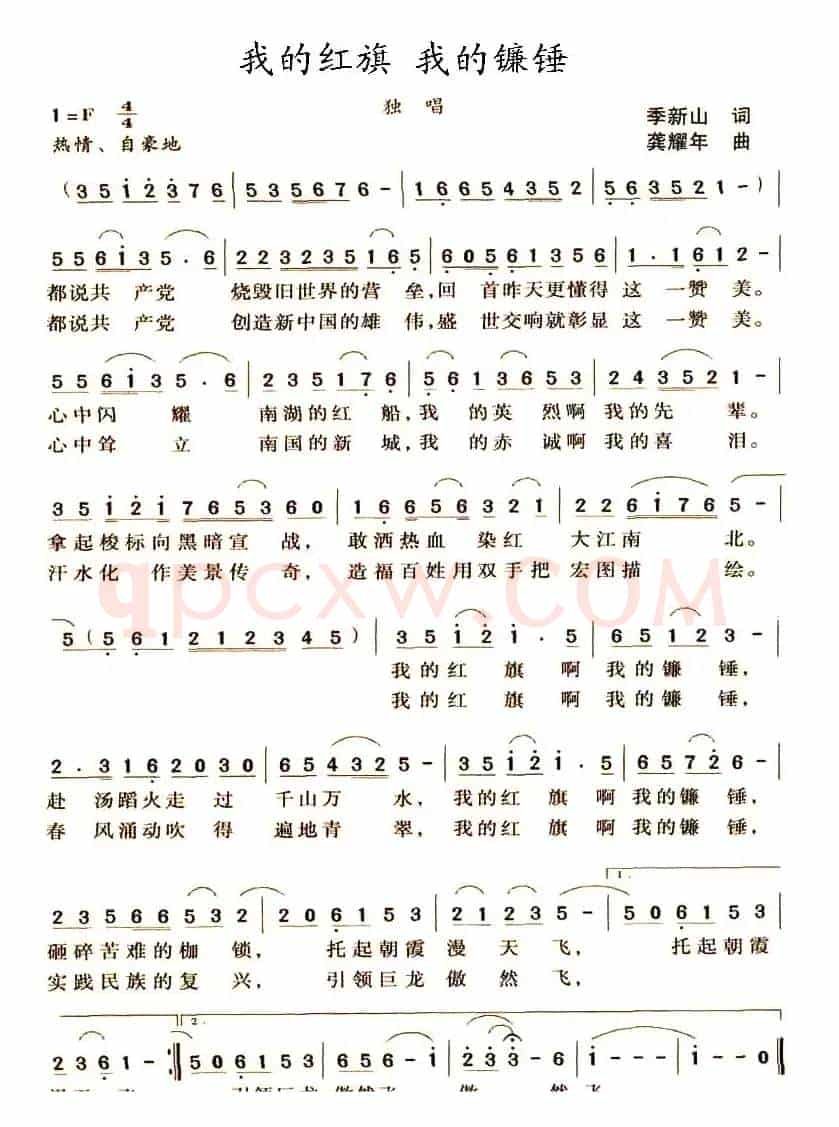 我的红旗 我的镰锤
1=F 4/4
独 唱
季新山 词
热情、自豪地
龚耀年 曲
(3 5 1 2 3 7 6 | 5 3 5 6 7 6 - | 1 6 6 5 4 3 5 2 | 5 6 3 5 2 1 -)|
5 5 6 1 3 5 . 6 | 2 2 3 2 3 5 1 6 5 | 6 0 5 6 1 3 5 6 | 1 . 1 6 1 2 - |
都说共 产党 烧毁旧世界的营 垒,回 首昨天更懂得 这 一赞 美。
都说共 产党 创造新中国的雄 伟,盛 世交响就彰显 这 一赞 美。
5 5 6 1 3 5 . 6 | 2 3 5 1 7 6 | 5 6 1 3 6 5 3 | 2 4 3 5 2 1 - |
心中闪 耀 南湖的红 船,我 的英 烈啊 我的先 辈。
心中耸 立 南国的新 城,我 的赤 诚啊 我的喜 泪。
3 5 1 2 1 7 6 5 3 6 0 | 1 6 6 5 6 3 2 1 | 2 2 6 1 7 6 5 - |
拿起梭标向黑暗宣 战, 敢洒热血 染红 大江南 北。
汗水化 作美景传 奇, 造福百姓用双手把 宏图描 绘。
qpcxw.COM
5 (5 6 1 2 1 2 3 4 5) | 3 5 1 2 1 . 5 | 6 5 1 2 3 - |
我的红 旗 啊 我的镰 锤,
我的红 旗 啊 我的镰 锤,
2 . 3 1 6 2 0 3 0 | 6 5 4 3 2 5 - | 3 5 1 2 1 . 5 | 6 5 7 2 6 - |
赴 汤蹈火走 过 千山万 水, 我的红 旗 啊 我的镰 锤,
春 风涌动吹 得 遍地青 翠, 我的红 旗 啊 我的镰 锤,
1.
2 3 5 6 6 5 3 2 | 2 0 6 1 5 3 | 2 1 2 3 5 - | 5 0 6 1 5 3 |
砸碎苦难的枷 锁, 托起朝霞 漫 天 飞, 托起朝霞
实践民族的复 兴, 引领巨龙 傲 然 飞,
2.
2 3 6 1 - :| 5 0 6 1 5 3 | 6 5 6 - 1 | 2 3 3 - | 1 - - - | 1 - - 0 ‖